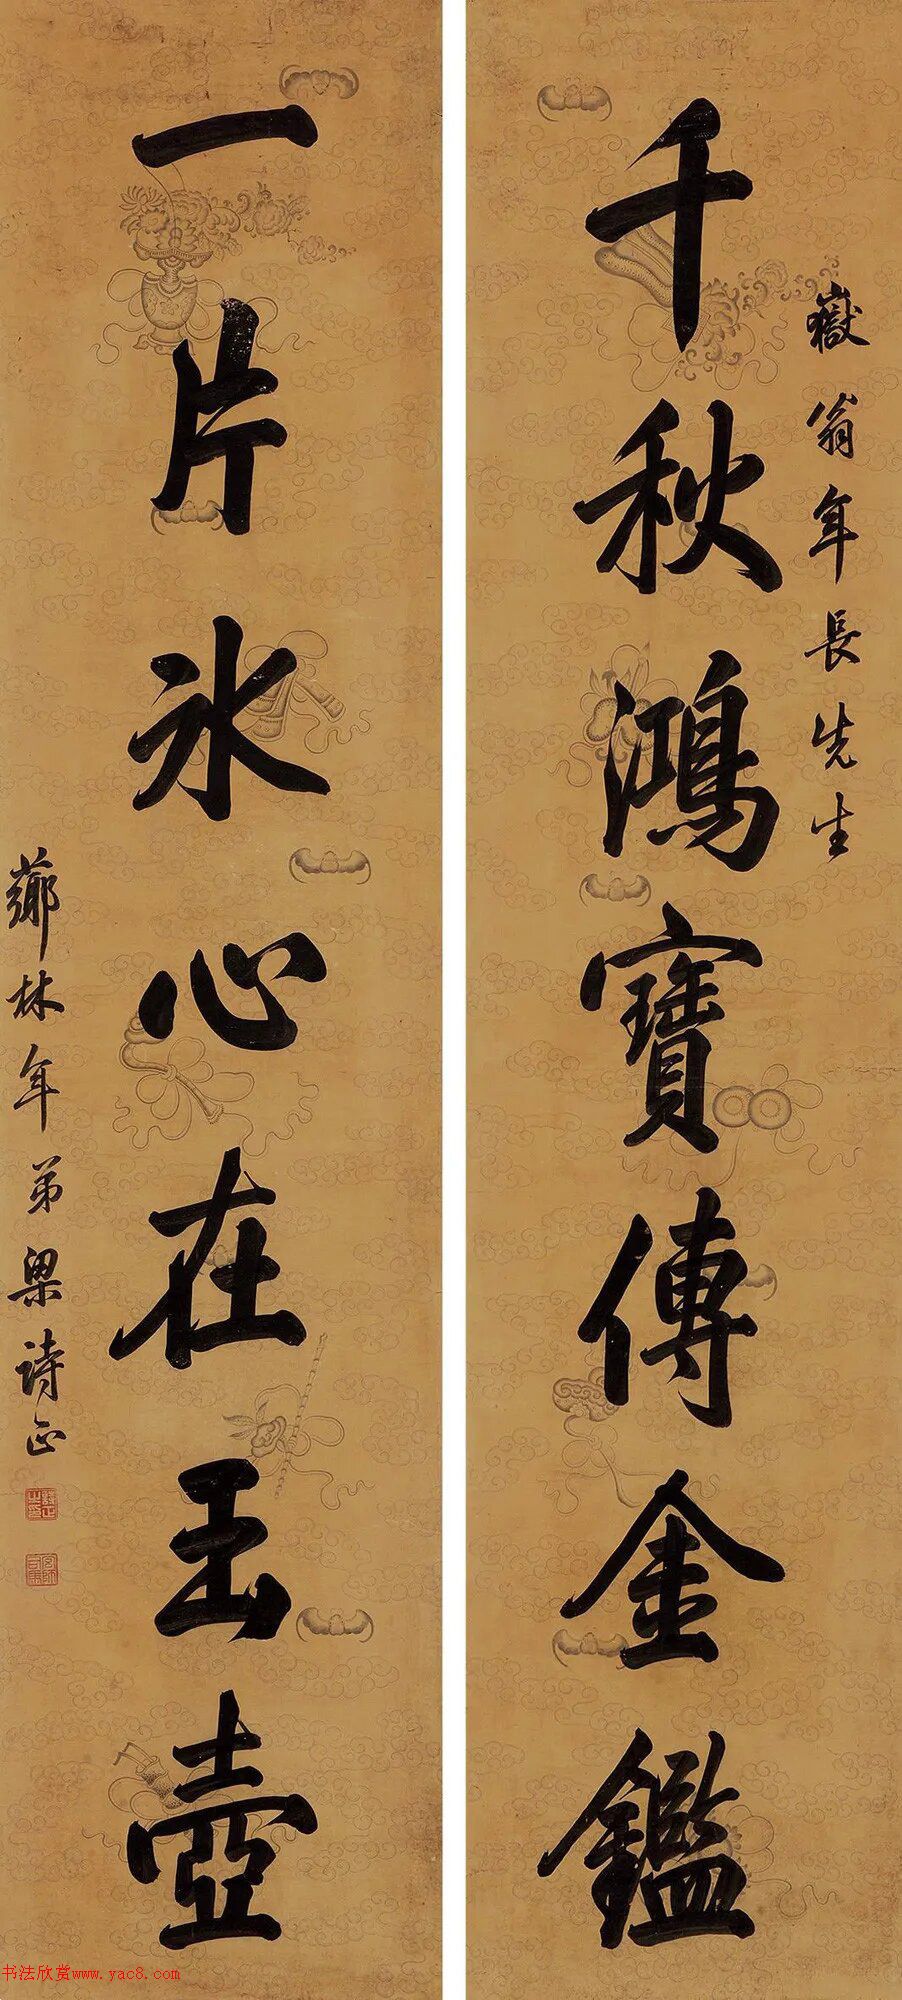 嶽翁年長先生
千秋鴻寶傳金鑑
一片冰心在玉壺
薌林年弟梁詩正
書法欣赏www.yac8.com